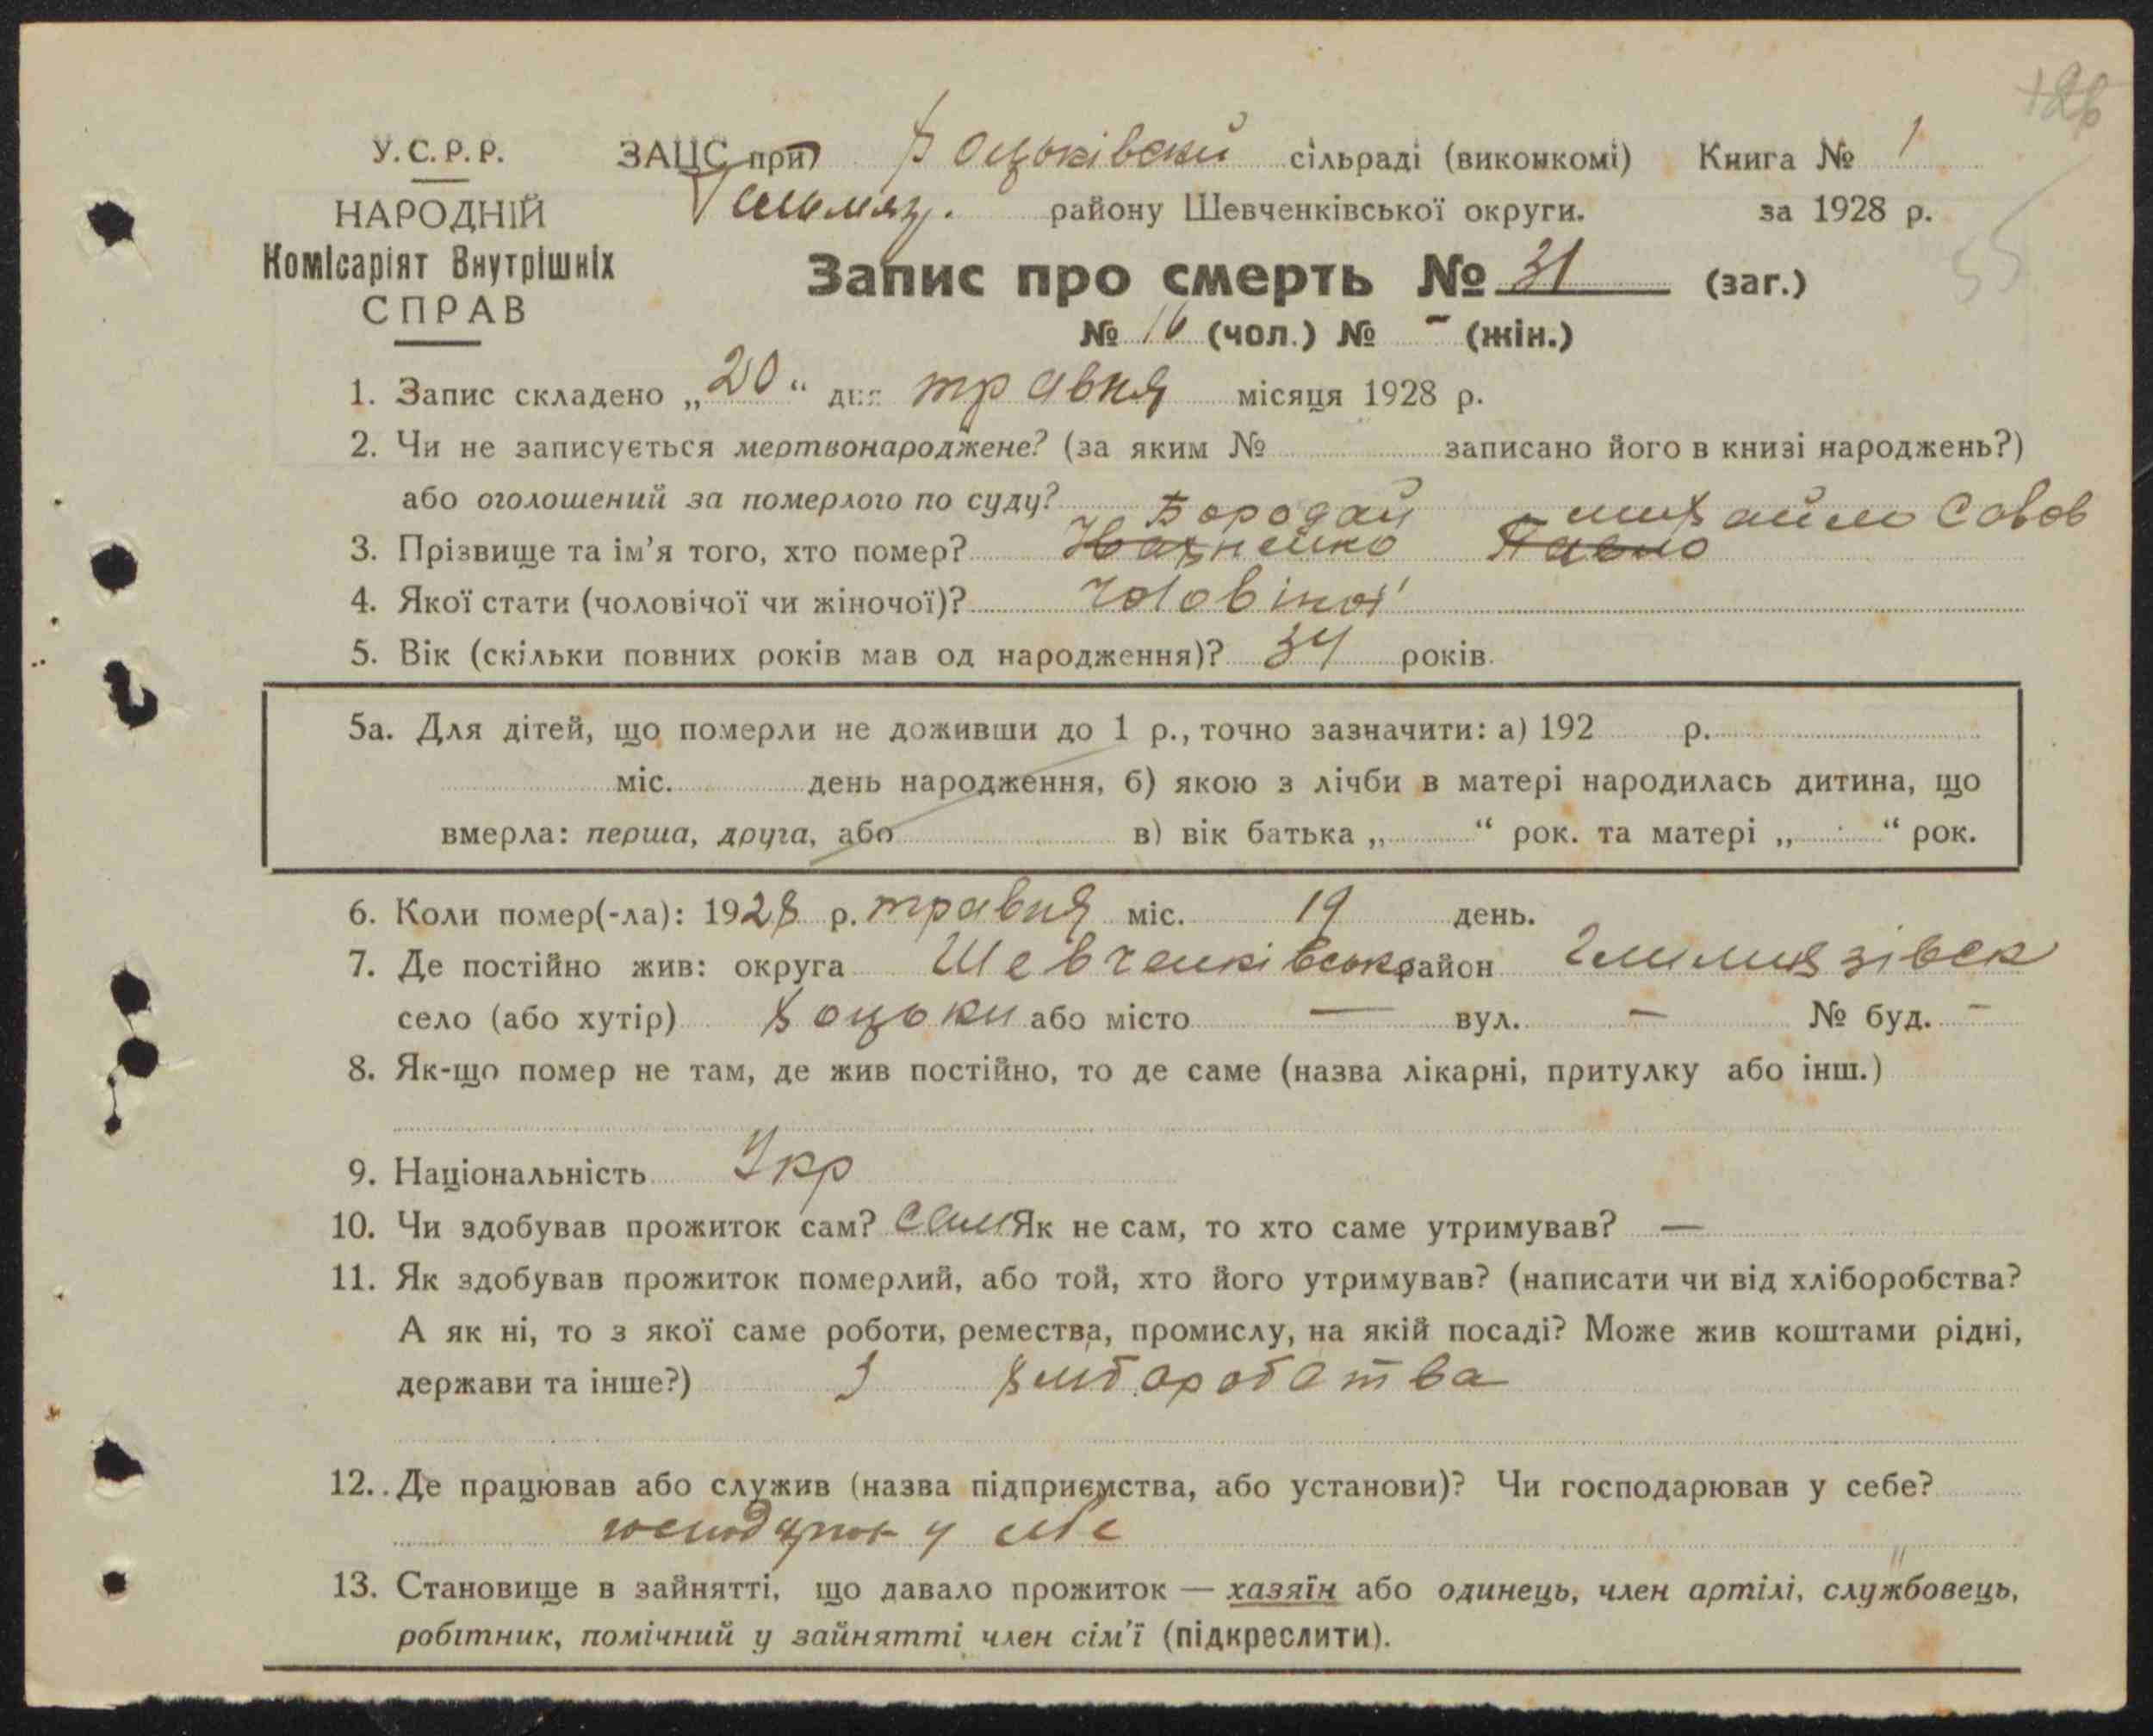 У.С.Р.Р.
НАРОДНІЙ
Комісаріят Внутрішніх
СПРАВ
ЗАЦС при Хоцьківській сільраді (виконкомі) Книга № 1
Гельмяз. району Шевченківської округи. за 1928 р.
55
Запис про смерть № 31 (заг.)
№ 16 (чол.) № - (жін.)
1. Запис складено „20“ дня травня місяця 1928 р.
2. Чи не записується мертвонароджене? (за яким № записано його в книзі народжень?)
або оголошений за померлого по суду?
Бородай Михайло Савов
3. Прізвище та ім'я того, хто помер? Павло
4. Якої стати (чоловічої чи жіночої)? Чоловічої
5. Вік (скільки повних років мав од народження)? 34 років.
5а. Для дітей, що померли не доживши до 1 р., точно зазначити: а) 192 р.
міс. день народження, б) якою з лічби в матері народилась дитина, що
вмерла: перша, друга, або в) вік батька „ “ рок. та матері „ “ рок.
6. Коли помер(-ла): 1928 р. травня міс. 19 день.
7. Де постійно жив: округа Шевченківська район Гельмязівськ
село (або хутір) Хоцьки або місто — вул. — № буд. -
8. Як-що помер не там, де жив постійно, то де саме (назва лікарні, притулку або інш.)
9. Національність Укр
10. Чи здобував прожиток сам? сам Як не сам, то хто саме утримував? —
11. Як здобував прожиток померлий, або той, хто його утримував? (написати чи від хліборобства?
А як ні, то з якої саме роботи, ремества, промислу, на якій посаді? Може жив коштами рідні,
держави та інше?) З хліборобства
12. Де працював або служив (назва підприємства, або установи)? Чи господарював у себе?
у себе
13. Становище в зайнятті, що давало прожиток — хазяїн або одинець, член артілі, службовець,
робітник, помічний у зайнятті член сім'ї (підкреслити).